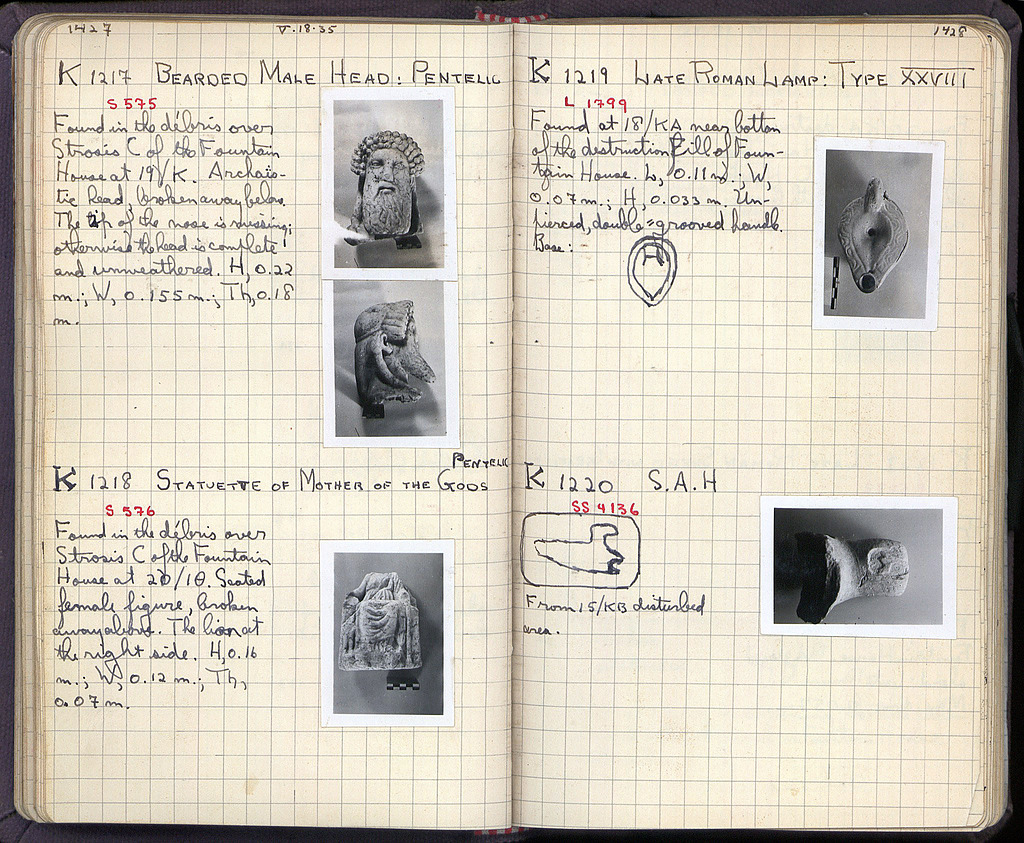 1427
V·18·35
K 1217 BEARDED MALE HEAD: PENTELIC
S 575
Found in the débris over
Strosis C of the Fountain
House at 19/K. Archais-
tic head, broken away below.
The tip of the nose is missing;
otherwise the head is complete
and unweathered. H, 0.22
m.; W, 0.155 m.; Th, 0.18
m.
PENTELIC
K 1218 STATUETTE OF MOTHER OF THE GODS
S 576
Found in the débris over
Strosis C of the Fountain
House at 20/IΘ. Seated
female figure, broken
away above. The lion at
the right side. H, 0.16
m.; W, 0.12 m.; Th,
0.07 m.
1428
K 1219 LATE ROMAN LAMP: TYPE XXVIII
L 1799
Found at 18/KA near bottom
of the destruction fill of Foun-
tain House. L, 0.11 m.; W,
0.07 m.; H, 0.033 m. Un-
pierced, double-grooved handle.
Base:
K 1220 S.A.H
SS 4136
From 15/KB disturbed
area.